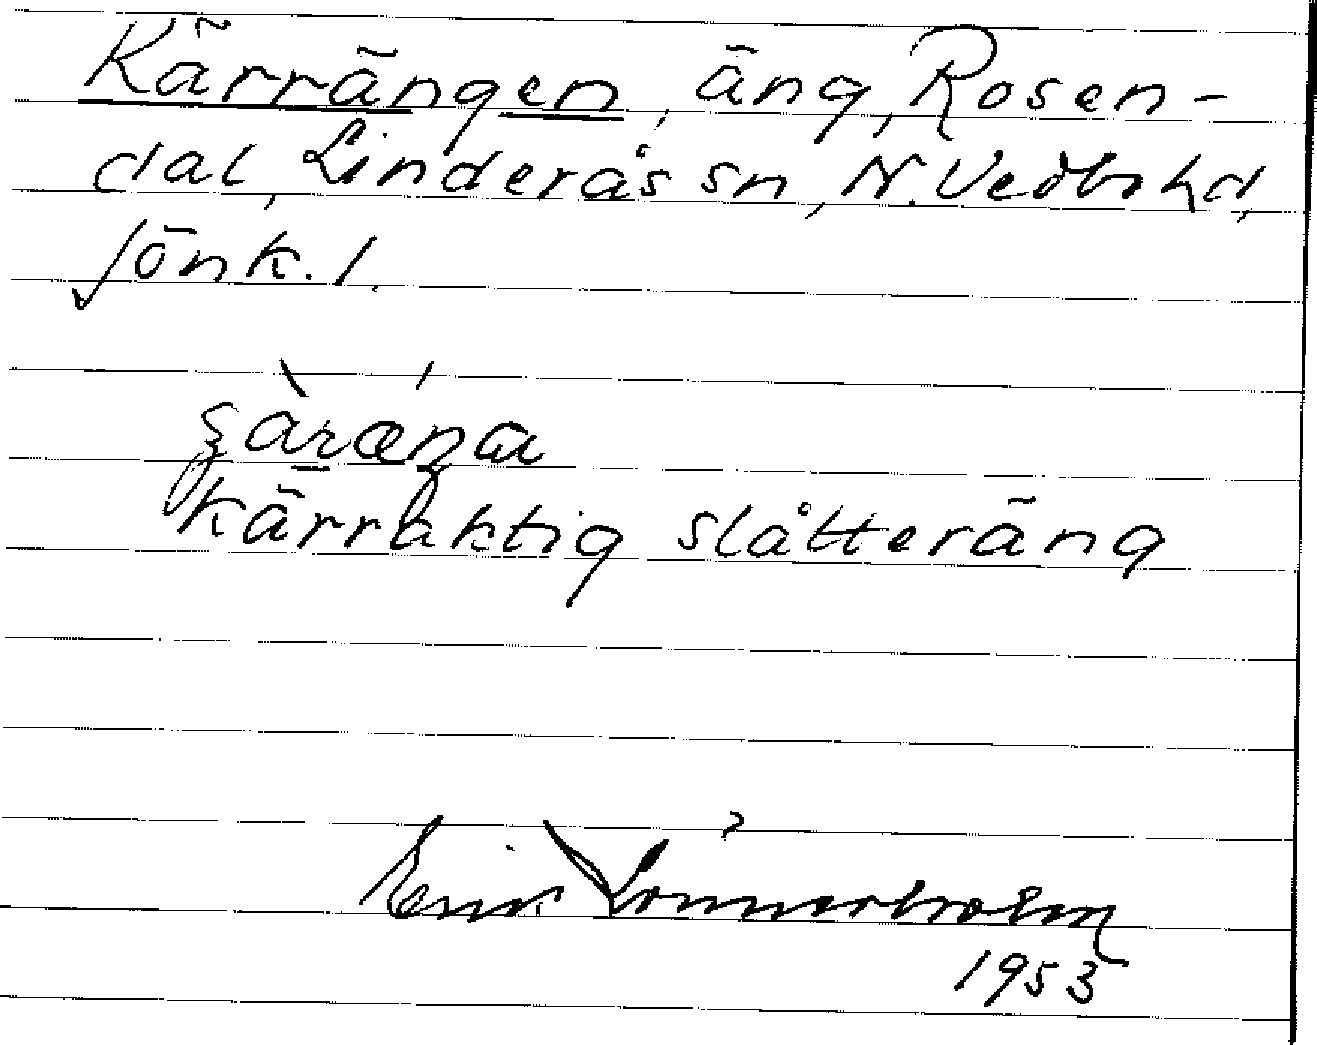 Kärrängen, äng, Rosen-
dal, Linderås sn, N. Vedbo hd,
Jönk. l.
kärraktig slåtteräng
Erik Lönnerholm
1953